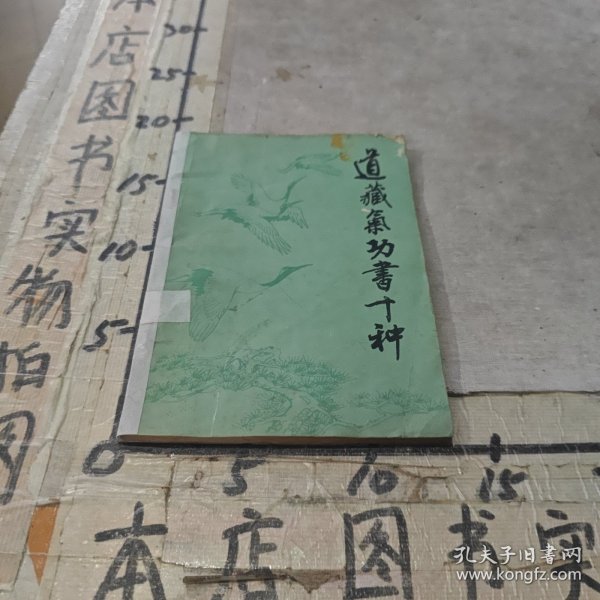 本店图书实物拍图
30
25
20
15
10
5
0
道藏氣功書十种
5
10
15
本店图书实
孔夫子旧書网
www.kongfz.com